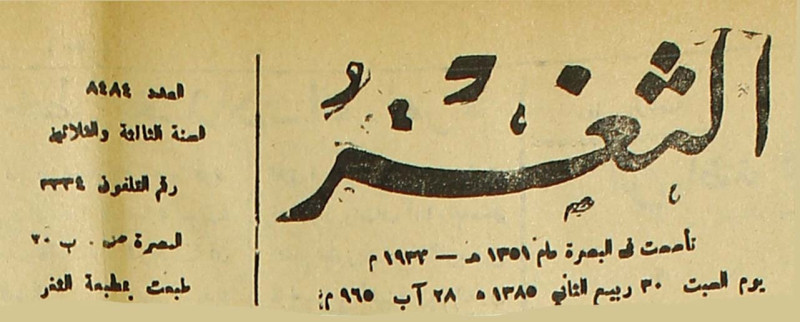 الثغر
تأسست في البصرة عام ١٣٥١ هـ — ١٩٣٣ م
يوم السبت ٣٠ ربيع الثاني ١٣٨٥ ه ٢٨ آب ٩٦٥ م
العدد ٨٤٨٤
السنة الثالثة والثلاثين
رقم التلفون ٣٣٣٤
البصرة ص . ب ٣٠
طبعت بمطبعة الثغر